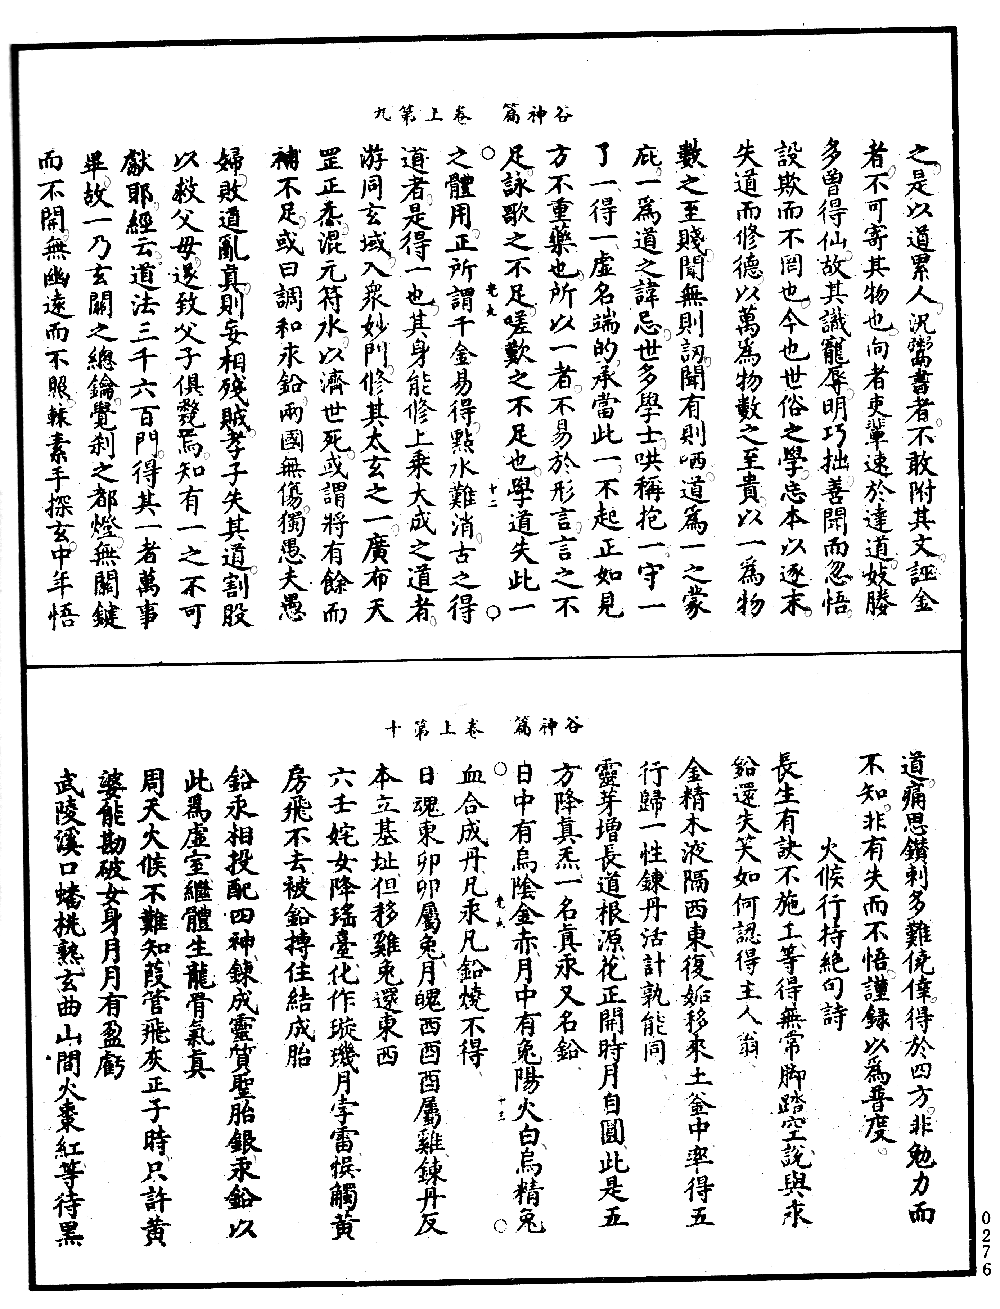 谷神篇　卷上第九
之是以道累人況鬻書者不敢附其文誣金
者不可寄其物也向者吏輩速於達道妓媵
多曾得仙故其識寵辱明巧拙善閉而忽悟
設欺而不罔也今也世俗之學忘本以逐末
失道而修德以萬為物數之至貴以一為物
數之至賤聞無則訒聞有則哂道為一之蒙
庇一為道之諱忌世多學士哄稱抱一守一
了一得一虛名端的承當此一不起正如見
方不重藥也所以一者不易於形言言之不
足詠歌之不足嗟歎之不足也學道失此一
之體用正所謂千金易得點水難消古之得
道者是得一也其身能修上乘大成之道者
游同玄域入眾妙門修其太玄之一廣布天
罡正炁混元符水以濟世死或謂將有餘而
補不足或曰調和求鉛兩國無傷獨愚夫愚
婦敗道亂真則妄相殘賊孝子失其道割股
以救父母遂致父子俱斃焉知有一之不可
獻耶經云道法三千六百門得其一者萬事
畢故一乃玄關之總鑰覺剎之都燈無關鍵
而不開無幽遠而不照棘素手探玄中年悟
谷神篇　卷上第十
道痛思鑽剌多難僥倖得於四方非勉力而
不知非有失而不悟謹録以為普度
火候行持絕句詩
長生有訣不施工等得無常脚踏空說與求
鉛還失笑如何認得主人翁
金精木液隔西東復姤移來土釜中率得五
行歸一性鍊丹活計孰能同
靈芽增長道根源花正開時月自圓此是五
方降真炁一名真汞又名鉛
日中有烏陰金赤月中有兔陽火白烏精兔
血合成丹凡汞凡鉛燒不得
日魂東卯卯屬兔月魄酉酉酉屬雞鍊丹反
本立基址但移雞兔還東西
六壬姹女降瑤臺化作璇璣月孛雷悞觸黃
房飛不去被鉛摶住結成胎
鉛汞相投配四神鍊成靈質聖胎銀汞鉛以
此為虛室繼體生龍骨氣真
周天火候不難知葭管飛灰正子時只許黃
婆能勘破女身月月有盈虧
武陵溪口蟠桃熟玄曲山間火棗紅等待黑
0276